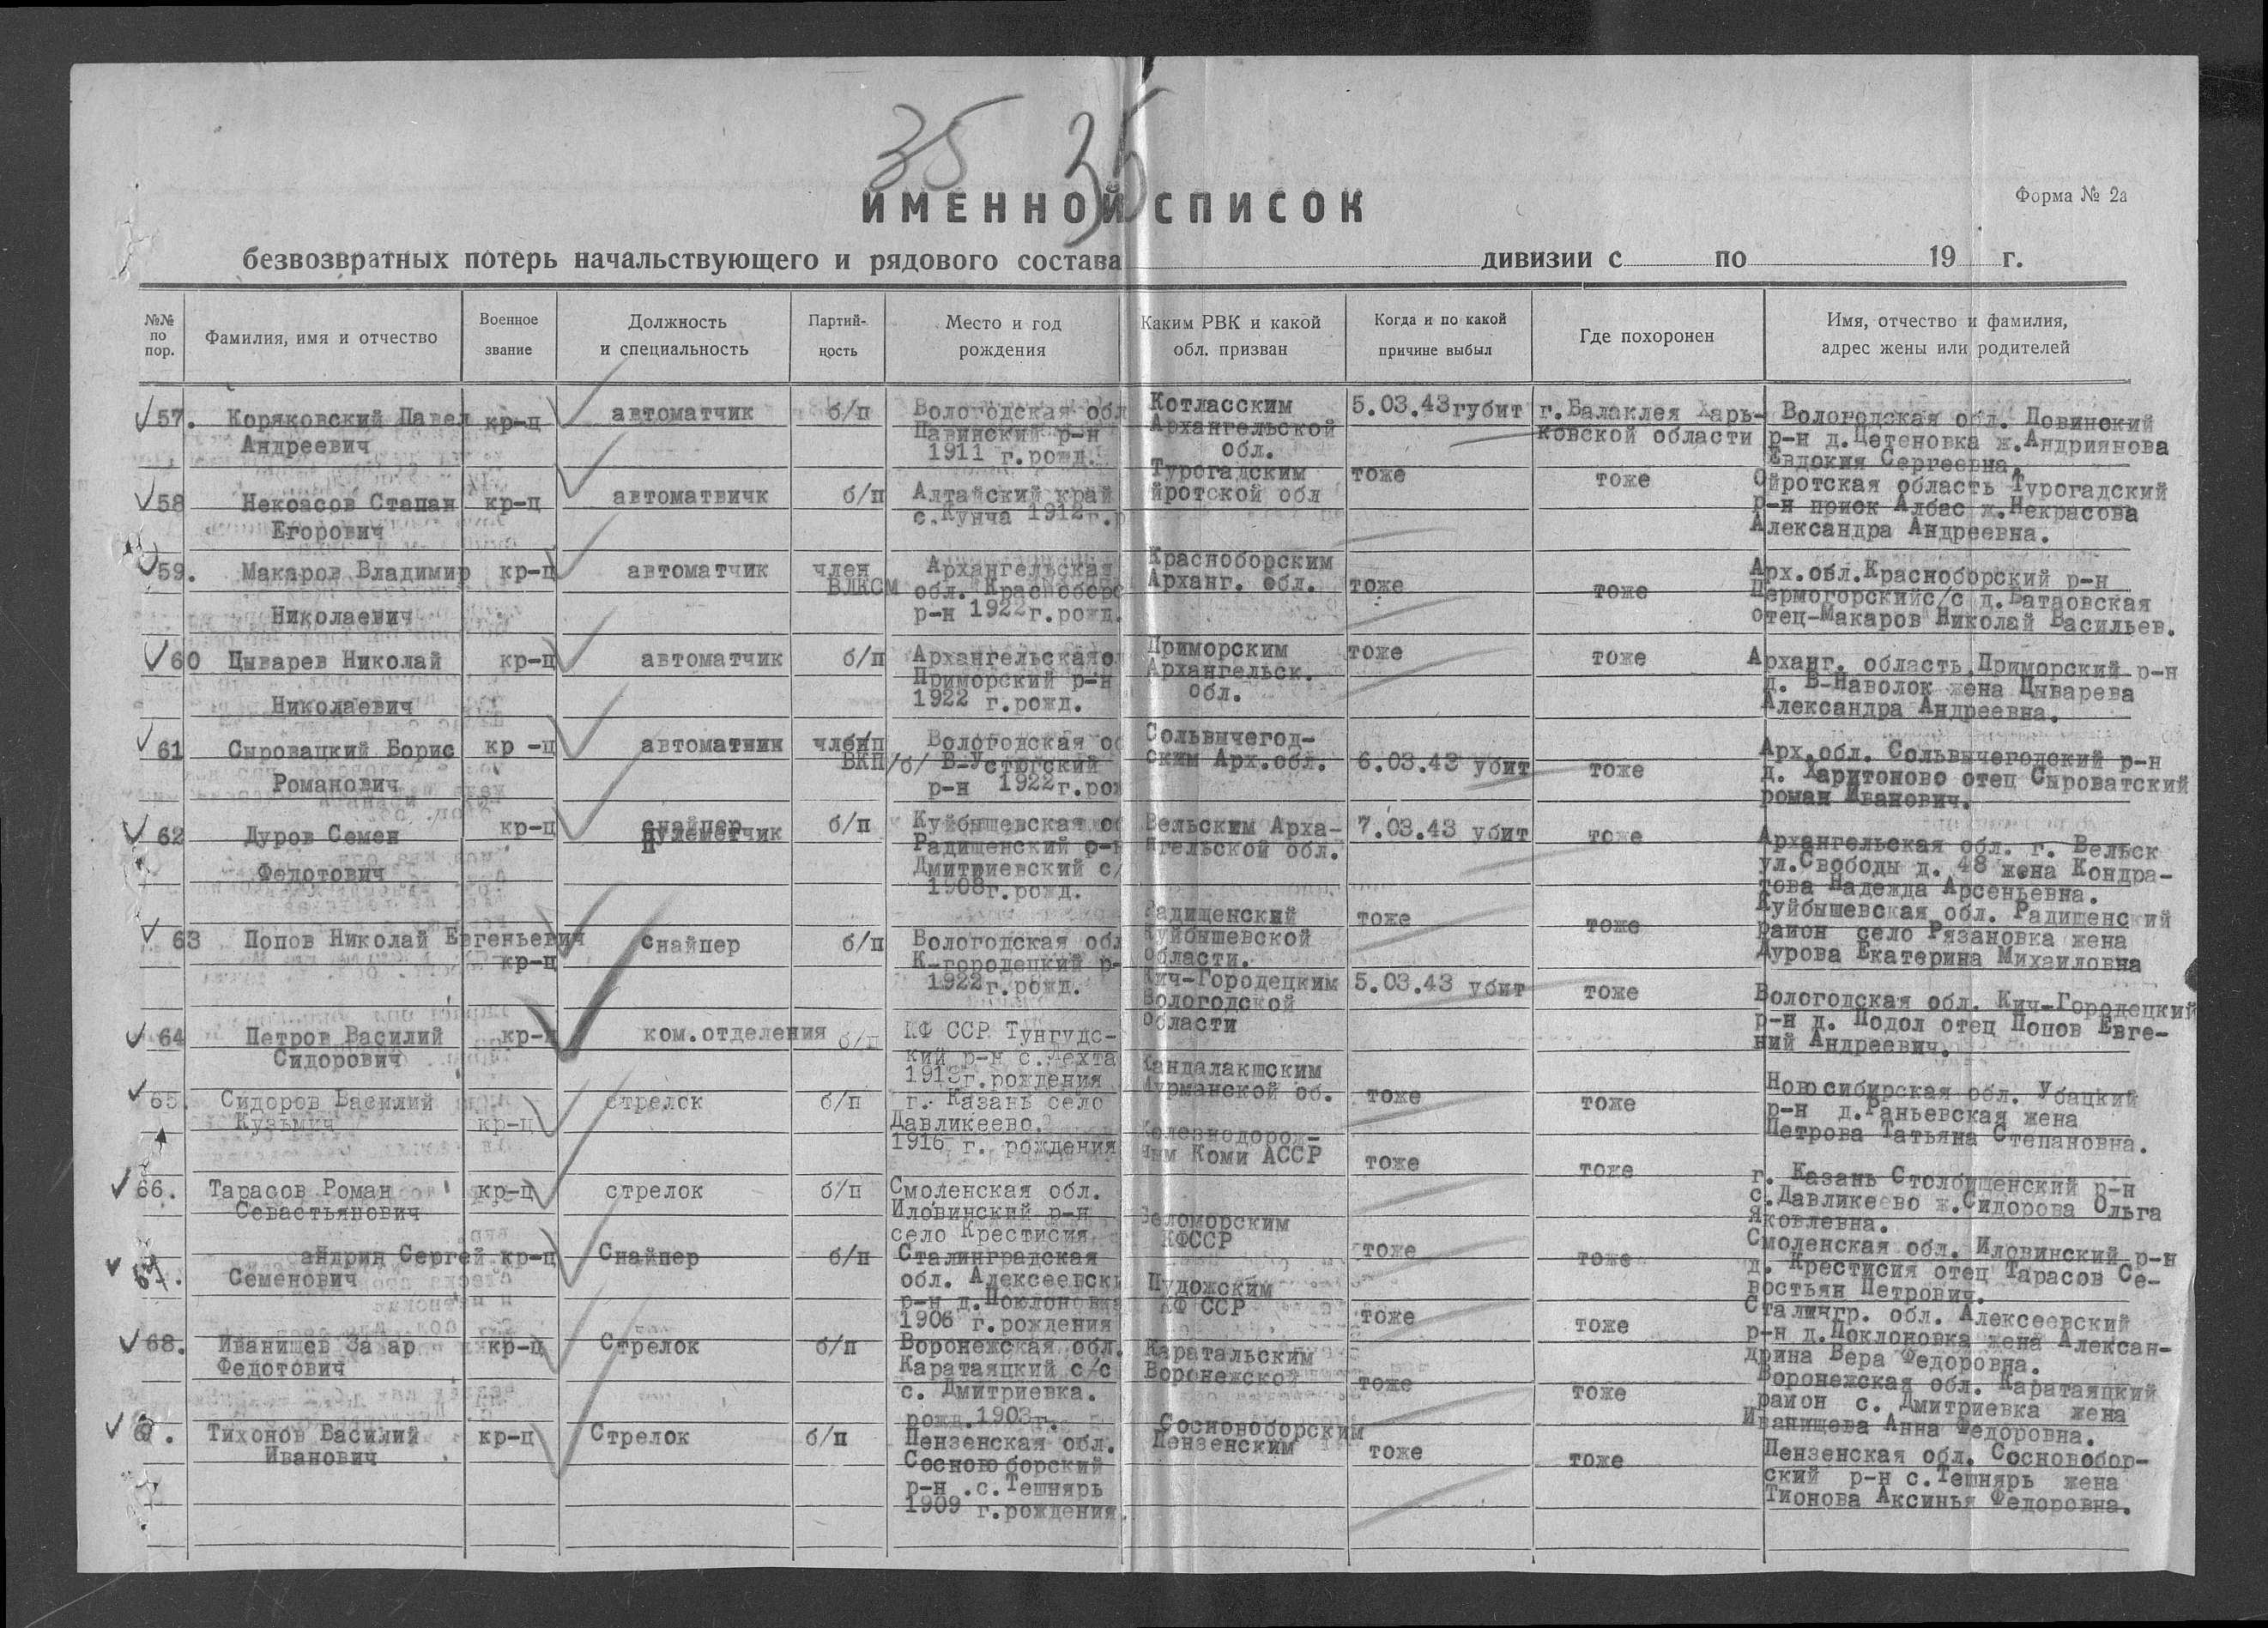 35 35
ИМЕННОЙ СПИСОК
Форма № 2а
безвозвратных потерь начальствующего и рядового состава дивизии с по 19 г.
№№ по пор.
Фамилия, имя и отчество
Военное звание
Должность и специальность
Партий-ность
Место и год рождения
Каким РВК и какой обл. призван
Когда и по какой причине выбыл
Где похоронен
Имя, отчество и фамилия, адрес жены или родителей
57. Коряковский Павел кр-ц автоматчик б/п Вологодская обл Котласским 5.03.43 губит г.Балаклея Харь- Вологодская обл. Повинский
Андреевич Павинский р-н Архангельской ковской области р-н д.Цетеновка ж.Андриянова
1911 г.рожд. обл. Евдокия Сергеевна.
58 Некоасов Стапан кр-ц автоматвичк б/п Алтайский край Турогадским тоже тоже Ойротская область Турогадский
Егорович с.Кунча 1912г.р йротской обл р-н приск Албас ж.Некрасова
Александра Андреевна.
59. Макаров Владимир кр-ц автоматчик член Архангельская Красноборским тоже тоже Арх.обл.Красноборский р-н
ВЛКСМ обл. Красноборс Арханг. обл. Пермогорскийс/с д.Батаовская
Николаевич р-н 1922г.рожд. отец-Макаров Николай Васильев.
60 Цыварев Николай кр-ц автоматчик б/п Архангельскаяо Приморским тоже тоже Арханг. область,Приморский р-н
Николаевич Приморский р-н Архангельск. д. В-Наволок жена Цыварева
1922 г.рожд. обл. Александра Андреевна.
61 Сыровацкий Борис кр -ц автоматник член Вологодская об Сольвычегод- 6.03.43 убит тоже Арх.обл. Сольвычегодский р-н
Романович ВКП/б/ В-Устюгский ским Арх.обл. д. Харитоново отец Сыроватский
р-н 1922г.рож роман Иванович.
62 Дуров Семен кр-ц снайпер б/п Куйбышевская об Вельским Арха- 7.03.43 убит тоже Архангельская обл. г. Вельск
Федотович пулеметчик Радищенский р-н нгельской обл. ул.Свободы д. 48 жена Кондра-
Дмитриевский с/ това Надежда Арсеньевна.
1908г.рожд.
Радищенский тоже тоже Куйбышевская обл. Радищенский
63 Попов Николай Евгеньевич снайпер б/п Вологодская обл Куйбышевской район село Рязановка жена
кр-ц К-городецкий р- области. Дурова Екатерина Михаиловна
1922г.рожд. Кич-Городецким 5.03.43 убит тоже Вологодская обл. Кич-Городецкий
Вологодской р-н д. Подол отец Попов Евге-
64 Петров Василий кр-ц ком.отделения б/п КФ ССР Тунгудс- области ний Андреевич.
Сидорович кий р-н с.Лехта
1913г.рождения Кандалакшским тоже тоже Новосибирская обл. Убацкий
65. Сидоров Василий стрелок б/п г. Казань село Мурманской об. р-н д.Раньевская жена
Кузьмич кр-ц Давликеево. Петрова Татьяна Степановна.
1916 г. рождения Железнодорож-
ным Коми АССР тоже тоже г. Казань Столбищенский р-н
66. Тарасов Роман кр-ц стрелок б/п Смоленская обл. с.Давликеево ж.Сидорова Ольга
Севастьянович Иловинский р-н Яковлевна.
село Крестисия Беломорским тоже тоже Смоленская обл. Иловинский р-н
67. андрин Сергей кр-ц Снайпер б/п Сталинградская КФССР д. Крестисия отец Тарасов Се-
Семенович обл. Алексеевски востьян Петрович.
р-н д.Поклоновка Пудожским тоже тоже Сталингр. обл. Алексеевский
1906 г.рождения КФ ССР р-н д.Поклоновка жена Алексан-
дрина Вера Федоровна.
68. Иванищев За ар кр-ц Стрелок б/п Воронежская обл. Каратальским тоже тоже Воронежская обл. Каратаяцкий
Федотович Каратаяцкий с/с Воронежской район с. Дмитриевка жена
с. Дмитриевка. Иванищева Анна Федоровна.
рожд.1903г.
6 . Тихонов Василий кр-ц Стрелок б/п Пензенская обл. Сосновоборским тоже тоже Пензенская обл. Сосновобор-
Иванович Сосновоборский Пензенским ский р-н с.Тешнярь жена
р-н .с.Тешнярь Тионова Аксинья Федоровна.
1909 г.рождения.